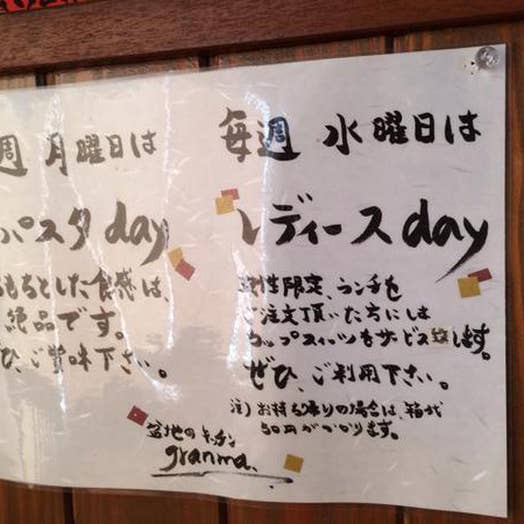 週 月曜日は
パスタ day
もちもちとした食感は、
絶品です。
ぜひ、ご賞味下さい。
毎週 水曜日は
レディースday
女性限定、ランチを
ご注文頂いた方には
カップスイーツをサービス致します。
ぜひ、ご利用下さい。
注）お持ち帰りの場合は、箱代
50円がかかります。
盆地のキッチン
granma.